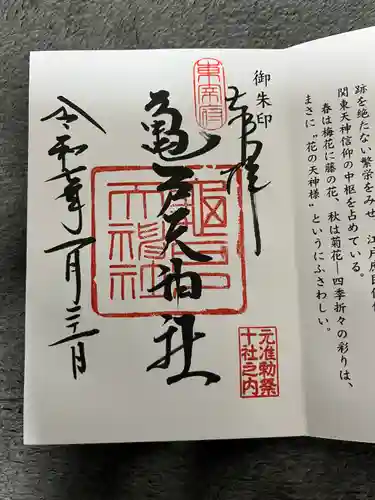 跡を絶たない繁栄をみせ、江戸庶民信仰
関東天神信仰の中枢を占めている。
春は梅花に藤の花、秋は菊花―四季折々の彩りは、
まさに“花の天神様”というにふさわしい。
御朱印
奉拝
東宰府
亀戸天神社
亀戸
天神社
元准勅祭
十社之内
令和 年一月